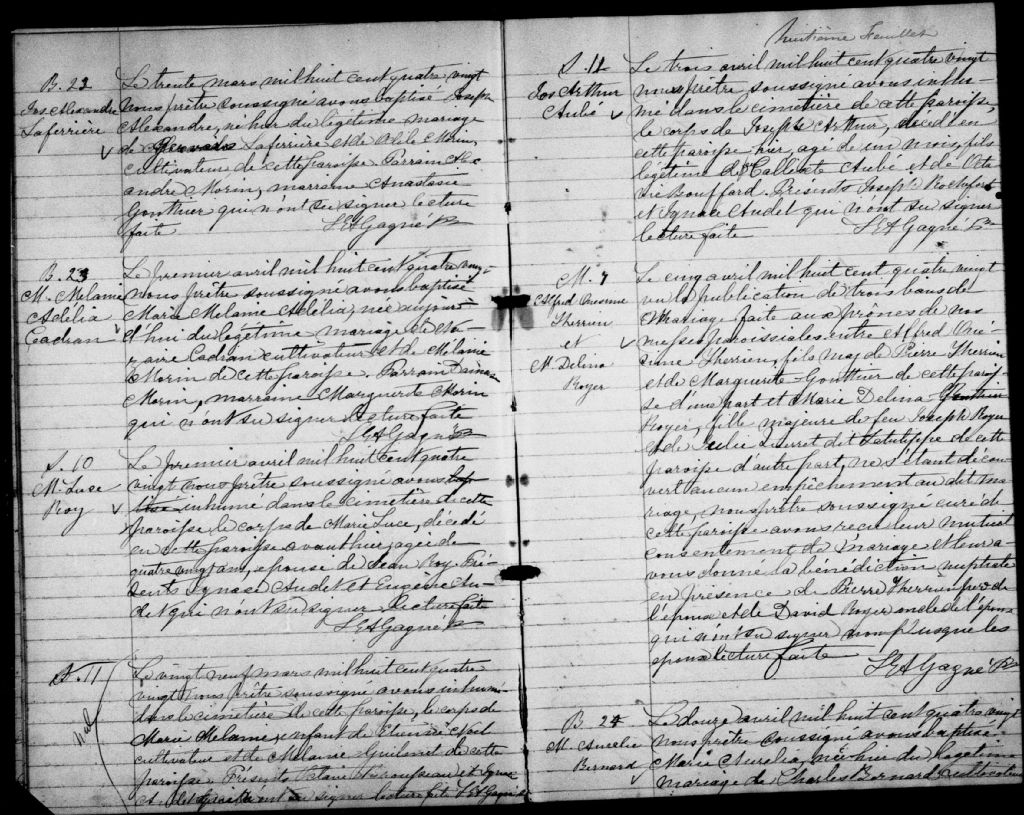 B. 22
Jos Alexandre
Laferrière
Le trente mars mil huit cent quatre vingt
nous prêtre soussigné avons baptisé Joseph
Alexandre, né hier du légitime mariage
de Laferrière et de Morin,
cultivateur de cette paroisse. Parrain Alex
andre Morin, marraine Anastasie
Gonthier qui n'ont su signer lecture
faite LEAGagné Ptr
B. 23
M. Melanie
Adélia
Cadran
Le premier avril mil huit cent quatre vingt
nous prêtre soussigné avons baptisé
Marie Melanie Adélia, née aujour
d'hui du légitime mariage de Na-
zaire Cadran cultivateur et de Mélanie
Morin de cette paroisse. Parrain Damase
Morin, marraine Marguerite Morin
qui n'ont su signer lecture faite
LEAGagné Ptr
S. 10
M. Luce
Roy
Le premier avril mil huit cent quatre
vingt nous prêtre soussigné avons bap
tisé inhumé dans le cimetière de cette
paroisse le corps de Marie Luce, décédé
en cette paroisse avant hier, agée de
quatre vingt ans, epouse de Jean Roy. Pré-
sents Ignace Audet et Eugène Au-
det qui n'ont su signer lecture faite
LEAGagné Ptr
S. 11
nul
Le vingt neuf mars mil huit cent quatre
vingt nous prêtre soussigné avons inhumé
dans le cimetière de cette paroisse, le corps de
Marie Melanie, enfant de Etienne
cultivateur et de Melanie Guilmet de cette
paroisse. Présents et Ignace
Audet qui n'ont su signer lecture faite LEAGagné
Huitième Feuillet
S. 11
Jos Arthur
Aubé
Le trois avril mil huit cent quatre vingt
nous prêtre soussigné avons inhu-
mé dans le cimetière de cette paroisse
le corps de Joseph Arthur, decédé en
cette paroisse hier, agé de un mois, fils
légitime de Callixte Aubé et de Oct
Bouffard. Présents Joseph Rochefort
et Ignace Audet qui n'ont su signer
lecture faite LEAGagné Ptr
M. 7
Alfred Onesime
Therrien
et
M. Delina
Royer
Le cinq avril mil huit cent quatre vingt
vu la publication de trois bans de
Mariage faite aux prones de nos
messes paroissiales entre Alfred Oné-
sime Therrien, fils maj de Pierre Therrien
et de Marguerite Gonthier de cette parois-
se d'une part et Marie Delina Gonthier
Royer, fille majeure de feu Joseph Royer
et de Julie Querret dit Latulippe de cette
paroisse d'autre part, ne s'étant décou-
vert aucun empêchement au dit ma
riage, nous prêtre soussigné curé de
cette paroisse avons reçu leur mutuel
consentement de mariage et leur a-
vons donné la bénédiction nuptiale
en présence de Pierre Therrien père de
l'époux et de David Royer oncle de l'épouse
qui n'ont su signer non plus que les
epoux lecture faite LEAGagné Ptr
B 24
M. Aurelie
Bernard
Le douze avril mil huit cent quatre vingt
nous prêtre soussigné avons baptisé
Marie Aurelia, née hier du légitime
mariage de Charles Bernard cultivateur